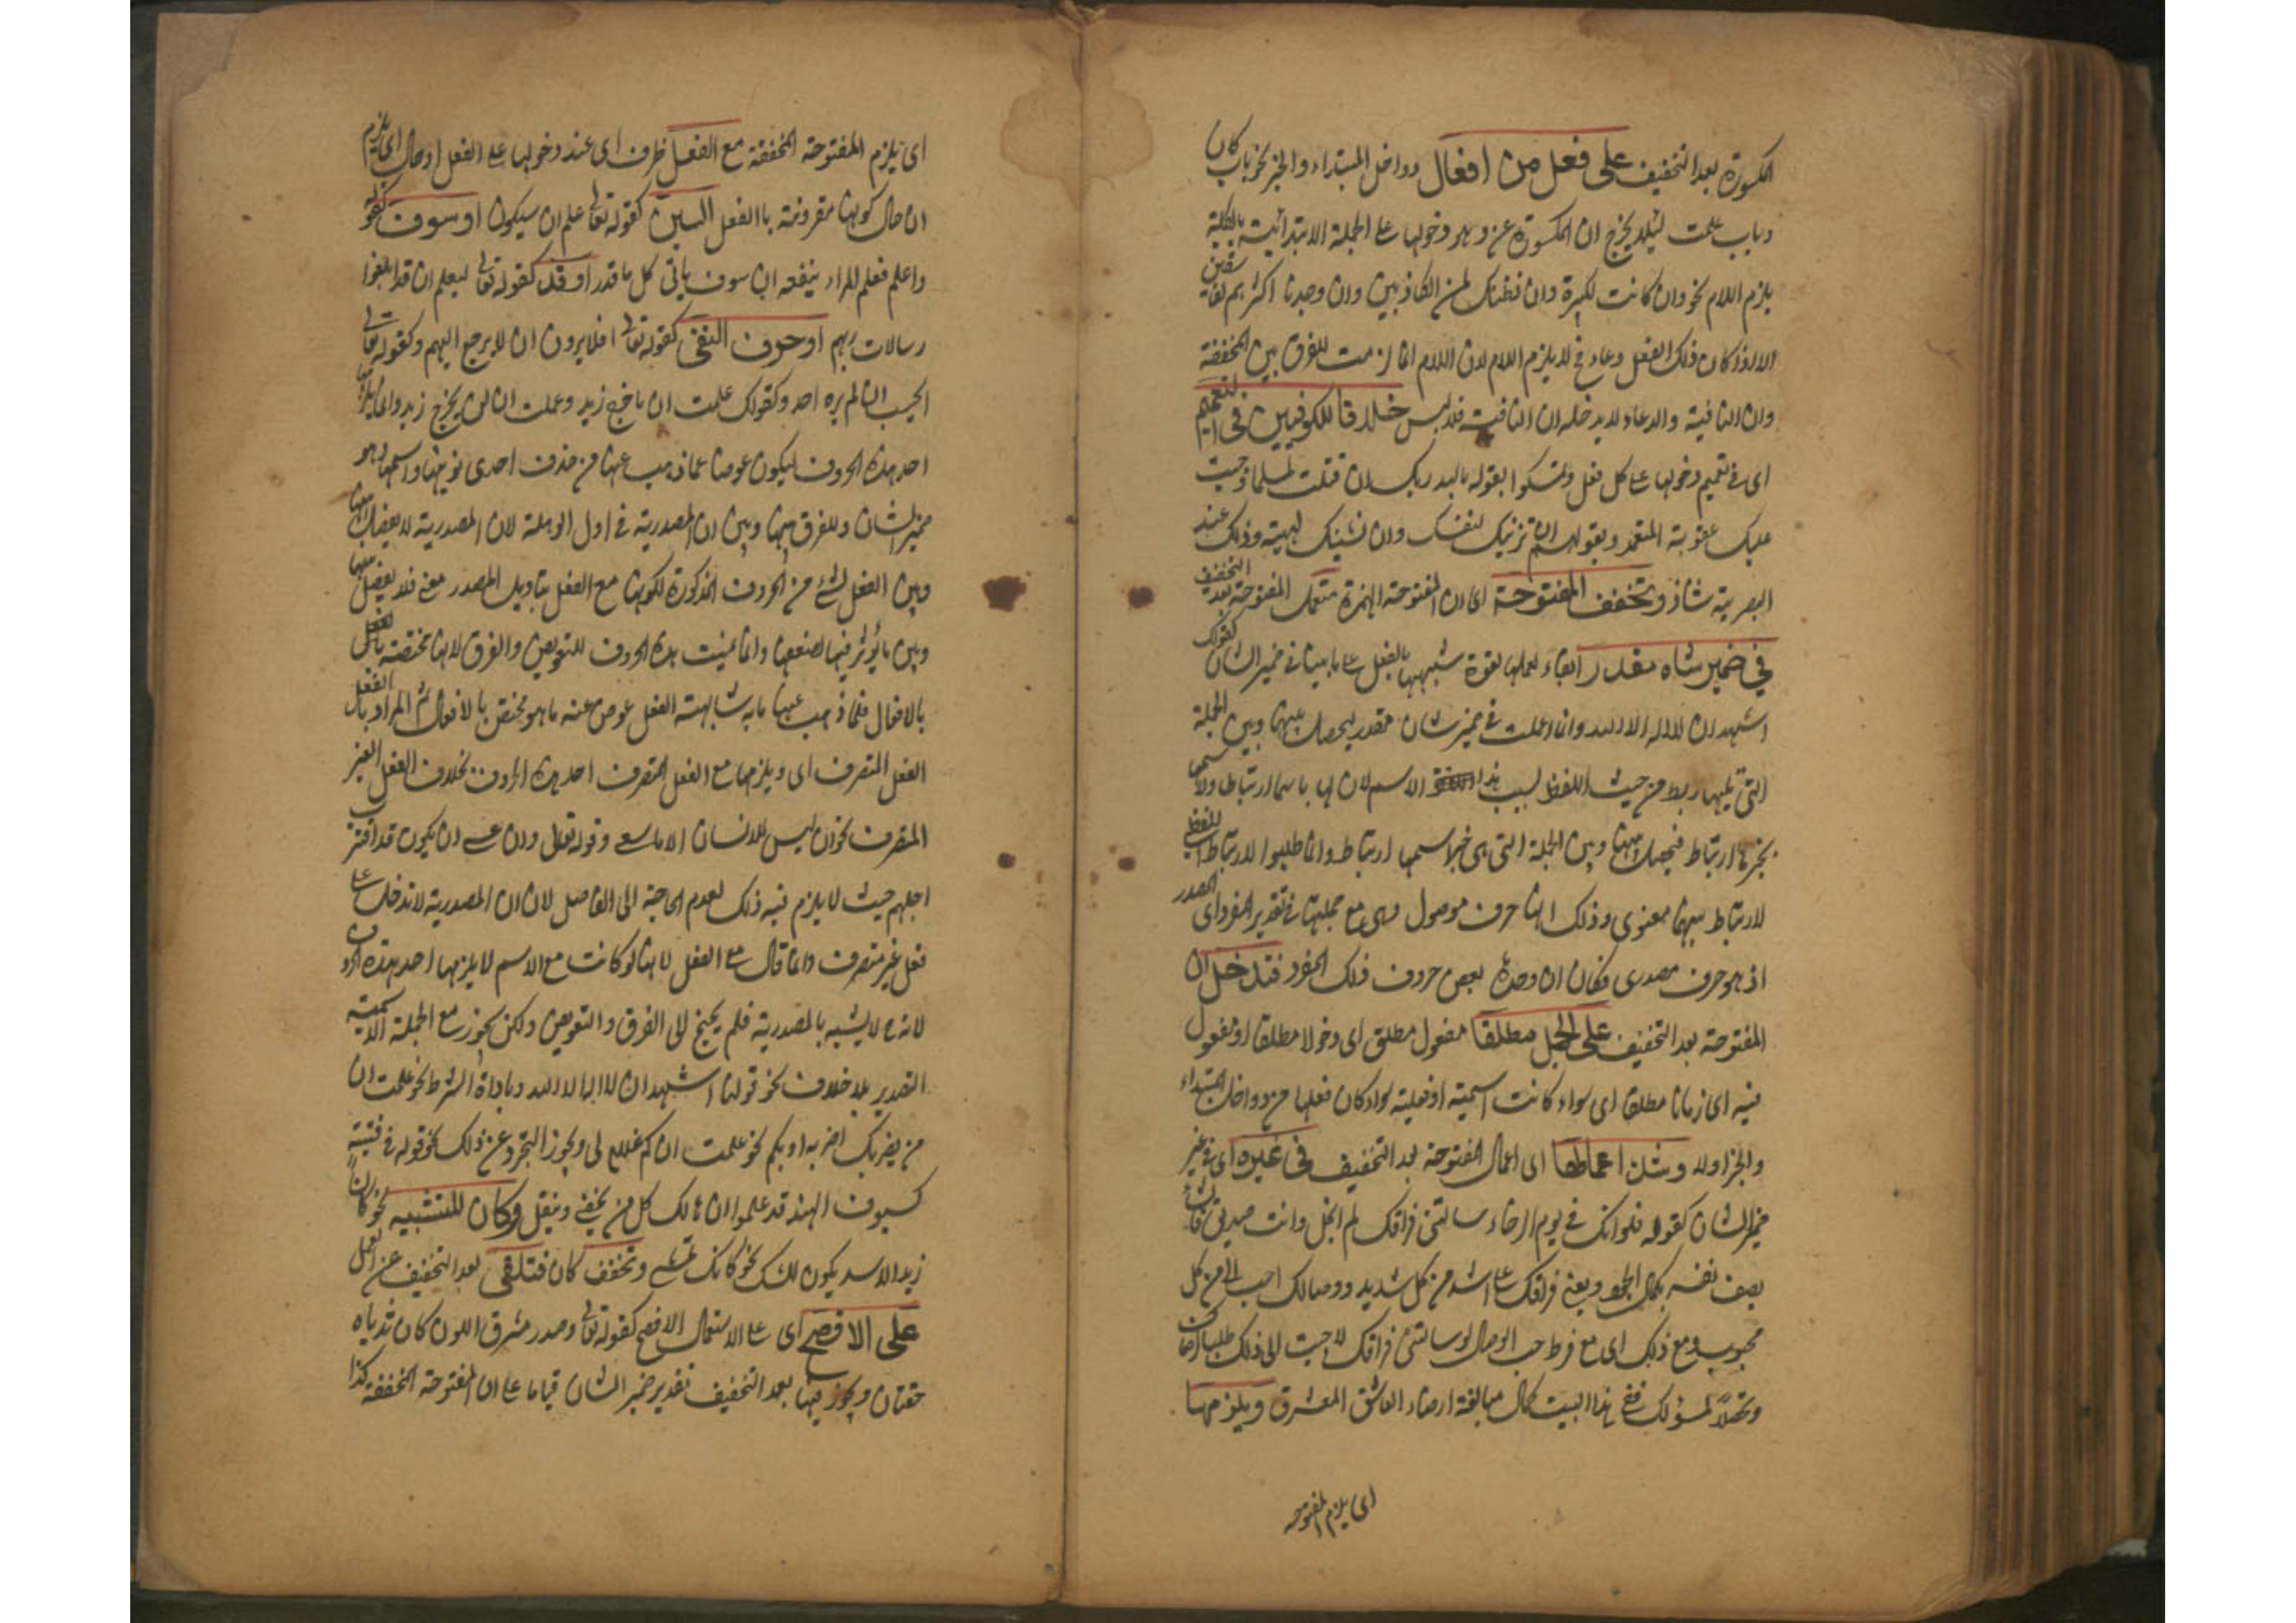 المكسورة بعد التخفيف على فعل من افعال دواخل المبتداء والخبر نحو باب كان
وباب علمت لئلا يخرج ان المكسورة عن وهو دخولها على الجملة الابتدائية بالكلية
يلزم اللام نحو وان كانت لكبيرة وان نظنك لمن الكاذبين وان وجدنا اكثرهم لفاسقين
الا اذا كان ذلك الفعل دعاء فح لا يلزم اللام لان اللام انما لزمت للفرق بين المخففة
وان النافية والدعاء لا يدخله ان النافية فلا لبس خلافا للكوفيين فى التعميم
اى فى تعميم دخولها على كل فعل وتمسكوا بقوله بالله ربك ان قتلت لمسلما وجبت
عليك عقوبة المتعمد وبقولهم ان تزنيك لنفسك وان تشينك لهيه وذلك عند
البصرية شاذ وتخفف المفتوحة اى ان المفتوحة الهمزة فتعمل المفتوحة بعد التخفيف
فى ضمير شان مقدر ابقاء لعملها لقوة شبهها بالفعل على ما بينا فى ضمير الشان كقولك
اشهد ان لا اله الا الله وانما اعملت فى ضمير شان مقدر ليحصل بينها وبين الجملة
التى تليها ربط من حيث اللفظ بسبب هذا الاسم لان لها باسمها ارتباطا ولاسمها
بخبرها ارتباط فيحصل بينها وبين الجملة التى هى خبر اسمها ارتباط وانما طلبوا الارتباط اللفظى
لارتباط بينهما معنوى وذلك انها حرف موصول وهى مع جملتها فى تقدير المفرد اى المصدر
اذ هو حرف مصدرى فكان ان وحدها بعض حروف ذلك المفرد فتدخل ان
المفتوحة بعد التخفيف على الجمل مطلقا مفعول مطلق اى دخولا مطلقا او مفعول
فيه اى زمانا مطلقا اى سواء كانت اسمية او فعلية سواء كان فعلها من دواخل المبتداء
والخبر اولا وشذ اعمالها اى اعمال المفتوحة بعد التخفيف فى غيره اى فى غير
ضمير الشان كقوله فلو انك فى يوم الرخاء سالتنى فراقك لم ابخل وانت صديق
يصف نفسه بكمال الجود يعنى فراقك على اشد من كل شديد ووصالك احب الى من كل
محبوب ومع ذلك اى مع فرط حب الوصال لو سالتنى فراقك لاجبت الى ذلك طلبا
لمسؤلك ففى هذا البيت كمال مبالغة ارضاء العاشق المعشوق ويلزمها
اى يلزم المفتوحة
اى يلزم المفتوحة المخففة مع الفعل ظرف اى عند دخولها على الفعل او حال اى يلزم
ان حال كونها مقرونة بالفعل السين كقوله تعالى علم ان سيكون او سوف كقوله
واعلم فعلم المرء ينفعه ان سوف ياتى كل ما قدر او قد كقوله تعالى ليعلم ان قد ابلغوا
رسالات ربهم او حرف النفى كقوله تعالى افلا يرون ان لا يرجع اليهم وكقوله تعالى
ايحسب ان لم يره احد وكقولك علمت ان ما خرج زيد وعلمت ان لن يخرج زيد وانما يلزمها
احد هذه الحروف ليكون عوضا عما ذهب عنها من حذف احدى نونيها واسمها وهو
ضمير الشان وللفرق بينها وبين ان المصدرية فى اول الوهلة لان المصدرية لا يفصل بينها
وبين الفعل بشئ من الحروف المذكورة لكونها مع الفعل بتاويل المصدر معنى فلا يفصل بينها
وبين ما يؤثر فيها لضعفها وانما عينت هذه الحروف للتعويض والفرق لانها مختصة بالفعل
بالافعال فلما ذهب عنها ما به شابهت الفعل عوض عنه ما هو مختص بالافعال ثم المراد بالفعل
الفعل المتصرف اى ويلزمها مع الفعل المتصرف احد هذه الحروف بخلاف الفعل الغير
المتصرف نحو ان ليس للانسان الا ما سعى وقوله تعالى وان عسى ان يكون قد اقترب
اجلهم حيث لا يلزم فيه ذلك لعدم الحاجة الى الفاصل لان ان المصدرية لا تدخل على
فعل غير متصرف وانما قال مع الفعل لانها لو كانت مع الاسم لا يلزمها احد هذه الحروف
لانه ح لا يشبه بالمصدرية فلم يحتج الى الفرق والتعويض ولكن يجوز مع الجملة الاسمية
التصدير بلا خلاف نحو قولنا اشهد ان لا اله الا الله وباداة الشرط نحو علمت ان
من يضربك اضربه او بكم نحو علمت ان كم غلام لى ويجوز التجرد عن ذلك نحو قوله فى فتية
كسيوف الهند قد علموا ان هالك كل من يحفى وينتعل وكان للتشبيه نحو كان
زيدا الاسد ويكون للشك نحو كانك تمشى وتخفف كان فتلغى بعد التخفيف عن العمل
على الافصح اى على الاستعمال الافصح كقوله تعالى وصدر مشرق اللون كان ثدياه
حقان ويجوز فيها بعد التخفيف تقدير ضمير الشان قياسا على ان المفتوحة المخففة كذا